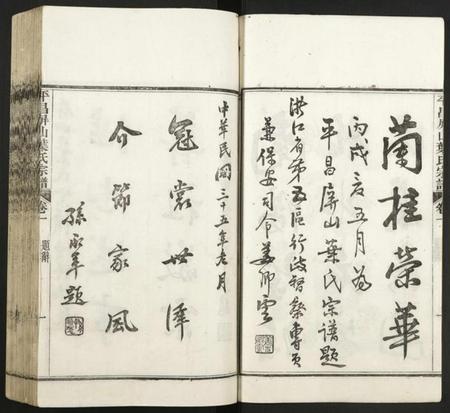 蘭桂榮華
丙戌夏五月為
平昌屏山葉氏宗譜題
浙江省第五區行政督察專員
兼保安司令姜卿雲
平昌屏山葉氏宗譜
卷一
中華民國三十五年七月
冠裳世澤
介節家風
孫永年題
平昌屏山葉氏宗譜
卷一
題辭
一